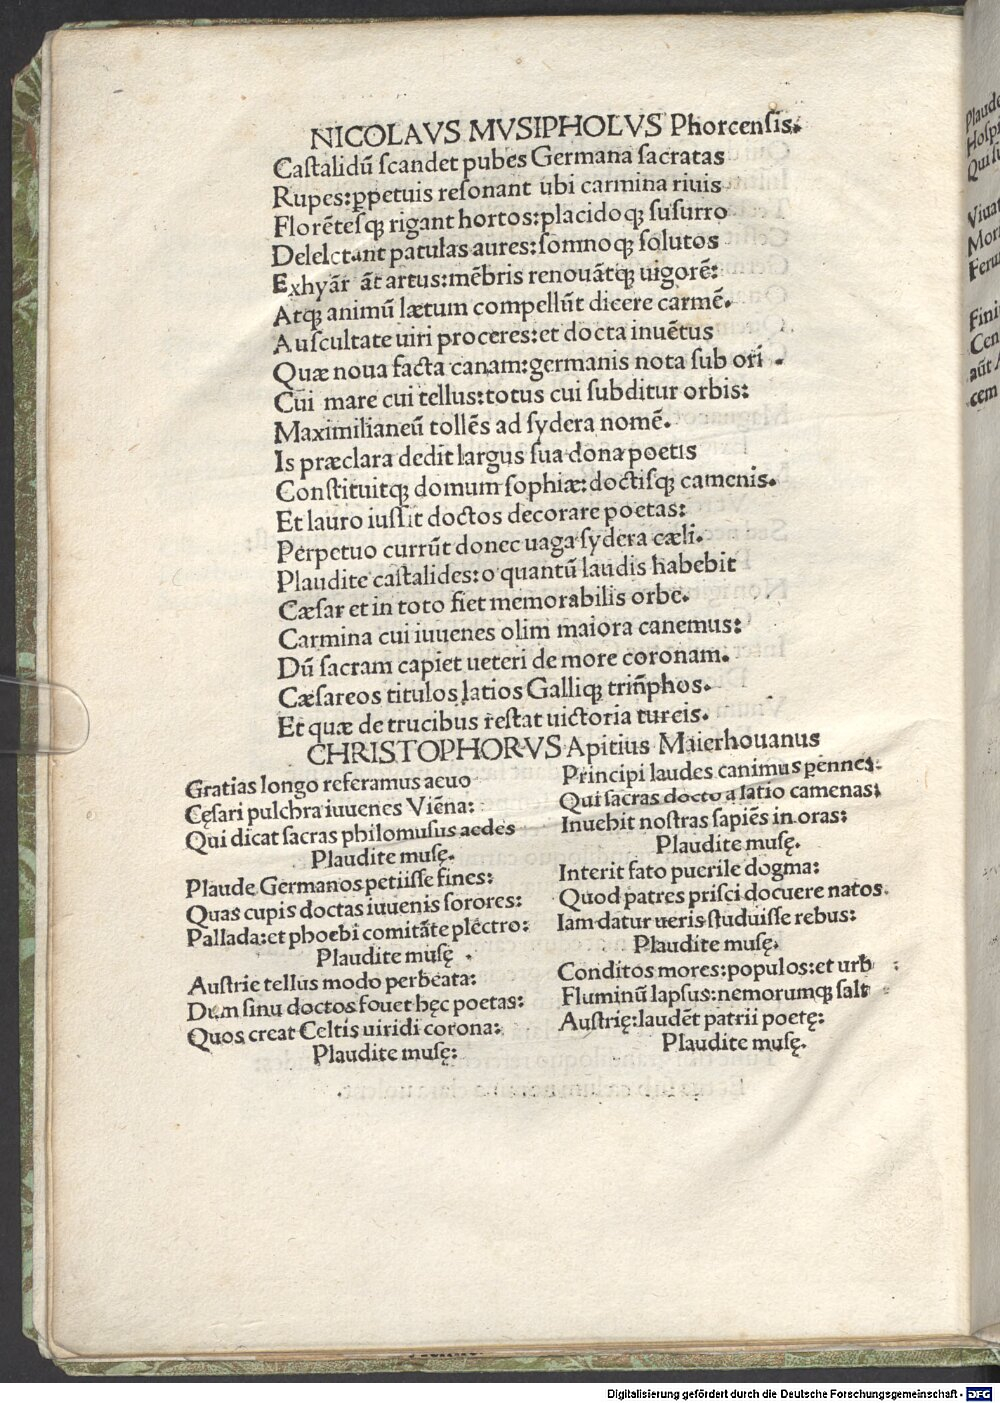 NICOLAVS MVSIPHOLVS Phorcenſis.
Caſtalidũ ſcandet pubes Germana ſacratas
Rupes:ꝑpetuis reſonant ubi carmina riuis
Florẽteſqꝫ rigant hortos:placidoqꝫ ſuſurro
Delectant patulas aures:ſomnoqꝫ ſolutos
artus:mẽbris renouãtqꝫ uigorẽ:
Atqꝫ animũ lætum compellũt dicere carmẽ.
Auſcultate uiri proceres:et docta iuuẽtus
Quæ noua facta canam:germanis nota ſub ori
Cui mare cui tellus:totus cui ſubditur orbis:
Maximilianeũ tollẽs ad ſydera nomẽ.
Is præclara dedit largus ſua dona poetis
Conſtituitqꝫ domum ſophiæ:doctiſqꝫ camenis.
Et lauro iuſſit doctos decorare poetas:
Perpetuo currũt donec uaga ſydera cæli.
Plaudite caſtalides:o quantũ laudis habebit
Cæſar et in toto fiet memorabilis orbe.
Carmina cui iuuenes olim maiora canemus:
Dũ ſacram capiet ueteri de more coronam.
Cæſareos titulos latios Galliqꝫ triũphos.
Et quæ de trucibus reſtat uictoria turcis.
CHRISTOPHORVS Apitius Maierhouanus
Gratias longo referamus aeuo
Cęſari pulchra iuuenes Viẽna:
Qui dicat ſacras philomuſus aedes
Plaudite muſę.
Plaude Germanos petiiſſe fines:
Quas cupis doctas iuuenis ſorores:
Pallada:et phoebi comitãte plectro:
Plaudite muſę.
Auſtrie tellus modo perbeata:
Dum ſinu doctos fouet hęc poetas:
Quos creat Celtis uiridi corona:
Plaudite muſę:
Principi laudes canimus
Qui ſacras docto a latio camenas:
Inuehit noſtras ſapiẽs in oras:
Plaudite muſę.
Interit fato puerile dogma:
Quod patres priſci docuere natos.
Iam datur ueris ſtuduiſſe rebus:
Plaudite muſę.
Conditos mores:populos:et urb
Fluminũ lapſus:nemorumqꝫ ſalt
Auſtrię:laudẽt patrii poetę:
Plaudite muſę.
Digitalisierung gefördert durch die Deutsche Forschungsgemeinschaft - DFG